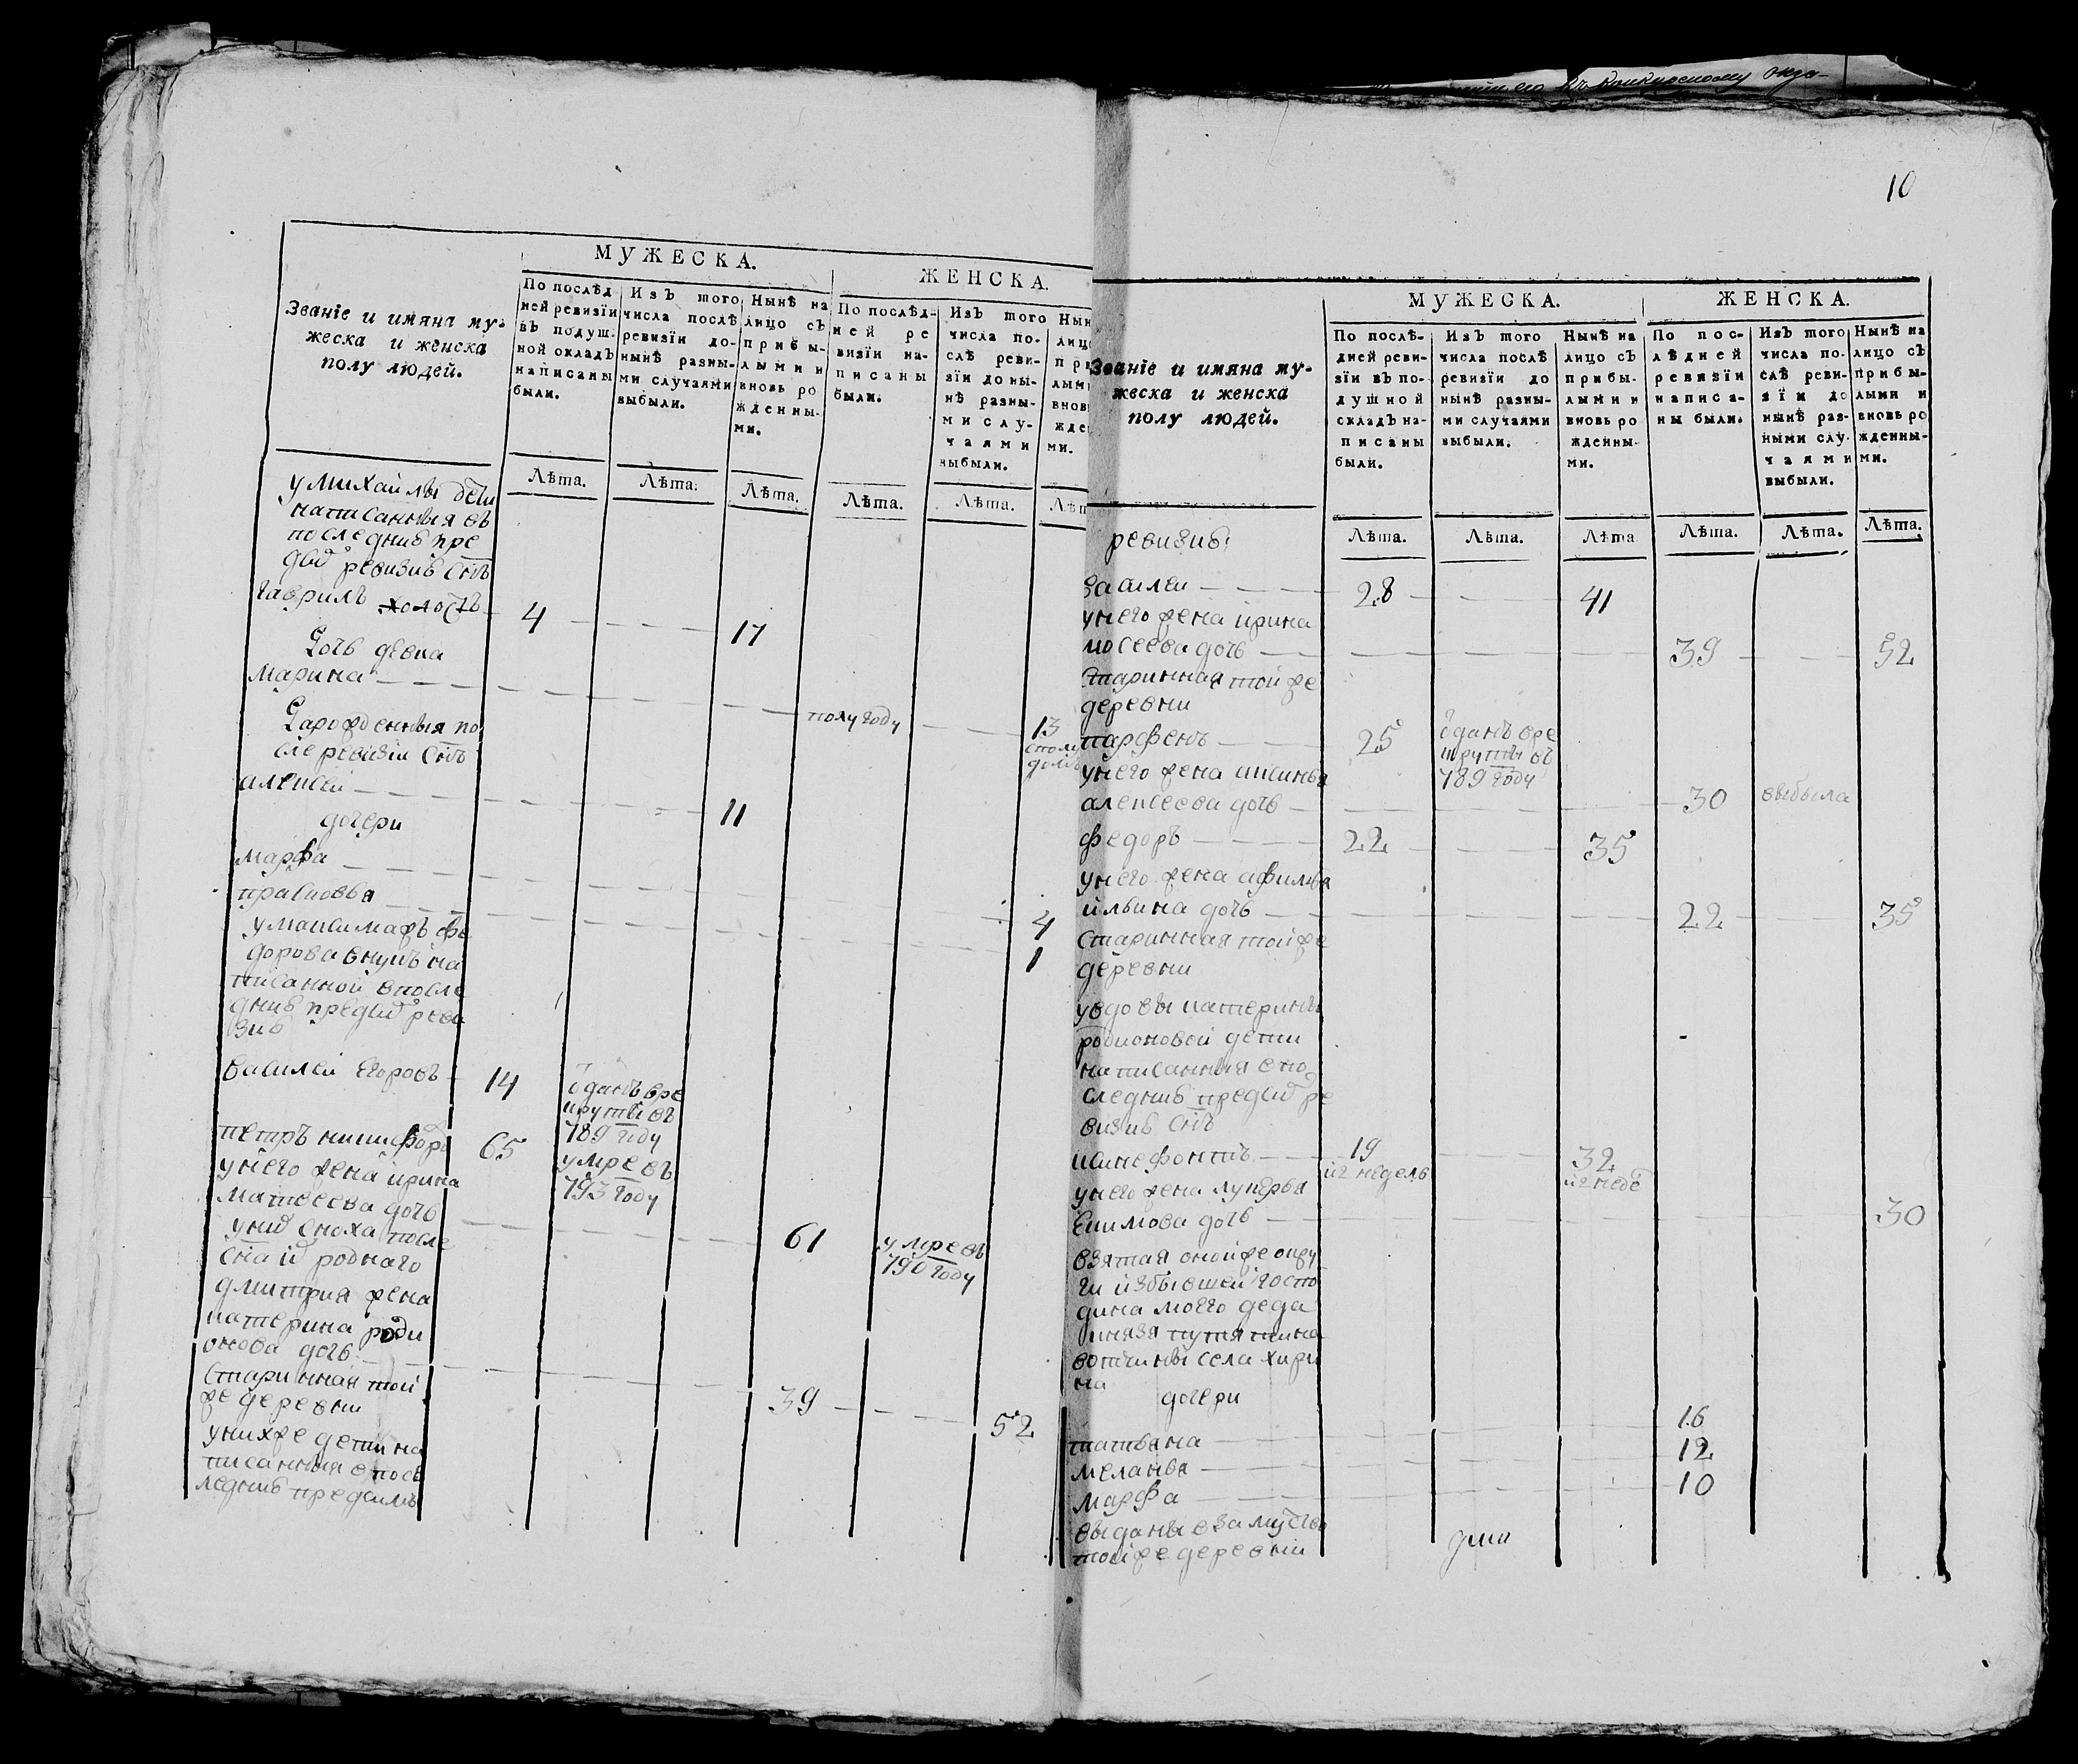 10
МУЖЕСКА.
ЖЕНСКА.
Званіе и имяна му-
жеска и женска
полу людей.
По послѣд
ней ревизіи
въ подуш-
ной окладъ
написаны
были.
Изъ того
числа послѣ
ревизіи до-
нынѣ разны-
ми случаями
выбыли.
Нынѣ на
лицо съ
прибы-
лыми и
вновь ро
жденны-
ми.
По послѣд-
ней ре
визіи на-
писаны
были.
Изъ того
числа по-
слѣ реви-
зіи до ны-
нѣ разны-
ми слу-
чаями
выбыли.
Лѣта.
Лѣта.
Лѣта.
Лѣта.
Лѣта.
у михаилы дети
написанныя въ
последнѣ пре
ревизиѣ снъ
гаврилъ холостъ 4 17
дочь девка
марина полугоду 13
зарожденныя по
сле ревизіи снъ
алексей 11
дочери
марфа 4
прасковья 1
у максима жъ фе
дорова внукъ на
писанной впосле
днѣ предъид реви
зиѣ
василей егоровъ 14 отданъ вре
круты въ
789 году
петръ никифоро 65 умре въ
793 году
у него жена ирина
матвеева дочь 61 умре въ
790 году
у них сноха после
сна их роднаго
дмитрия жена
катерина роди
онова дочь 39 52
старинная той
же деревни
у них же дети на
писанныя впос
леднѣ предъидъ
МУЖЕСКА.
ЖЕНСКА.
Званіе и имяна му-
жеска и женска
полу людей.
По послѣ-
дней реви-
зіи въ по-
душной
окладъ на-
писаны
были.
Изъ того
числа послѣ
ревизіи до
нынѣ разны-
ми случаями
выбыли.
Нынѣ на
лицо съ
прибы-
лыми и
вновь ро
жденны-
ми.
По пос-
лѣдней
ревизіи
написа-
ны были.
Изъ того
числа по-
слѣ реви-
зіи до
нынѣ раз-
ными слу-
чаями
выбыли.
Нынѣ на
лицо съ
прибы-
лыми и
вновь ро
жденны-
ми.
Лѣта.
Лѣта.
Лѣта
Лѣта.
Лѣта.
Лѣта.
ревизиѣ
василеи 28 41
у него жена ирина
мосеева дочь 39 52
старинная той же
деревни
парфенъ 25 отданъ вре
круты въ
789 году
у него жена аксинья
алексеева дочь 30 выбыла
федоръ 22 35
у него жена афимья
ильина дочь 22 35
старинная той же
деревни
у вдовы катерины
родионовой дети
написанныя впо
следнѣ предъид ре
визиѣ снъ
ксинефонтъ 19 32
у него жена лукерья
екимова дочь 30
взятая оной же окру
ги из бывшей госпо
дина моего деда
князя путятина
вотчины села хири
на
дочери
татьяна 16
меланья 12
марфа 10
выданы взамуство
той же деревни